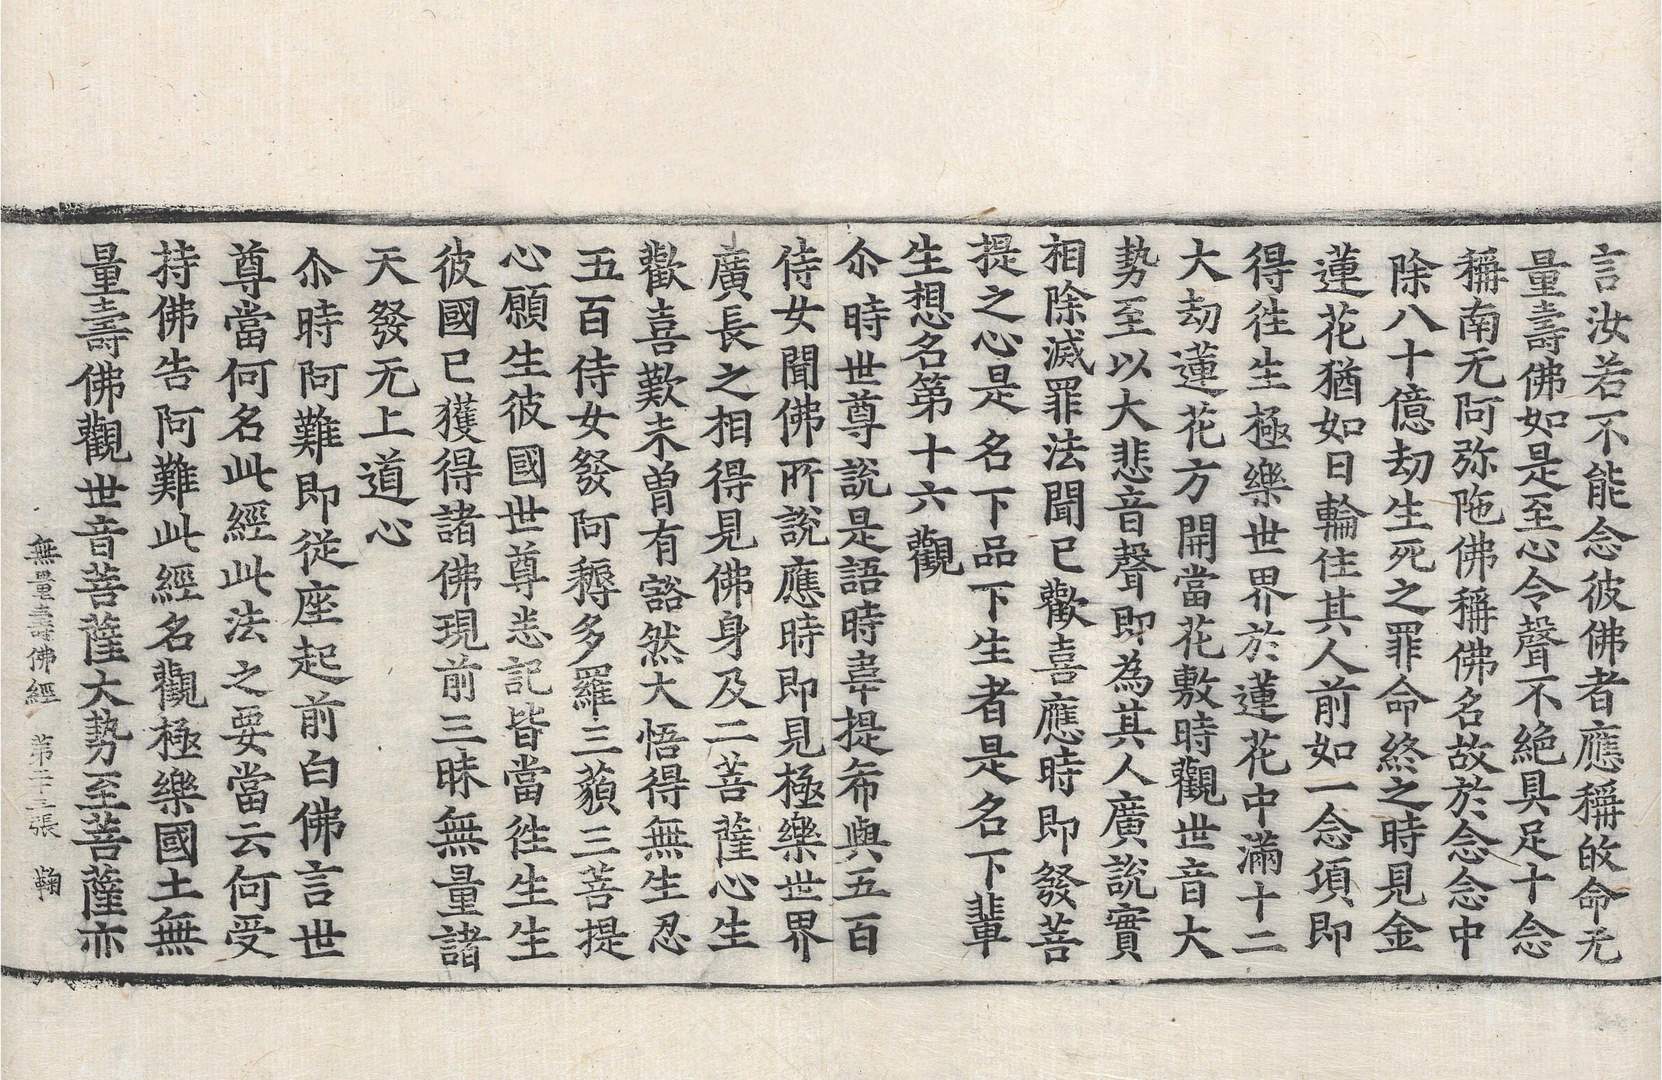 言汝若不能念彼佛者應稱㱕命无
量壽佛如是至心令聲不絕具足十念
稱南无阿弥陁佛稱佛名故於念念中
除八十億劫生死之罪命終之時見金
蓮花猶如日輪住其人前如一念頃即
得徃生極樂世界於蓮花中滿十二
大劫蓮花方開當花敷時觀世音大
勢至以大悲音聲即為其人廣說實
相除滅罪法聞已歡喜應時即發菩
提之心是名下品下生者是名下輩
生想名第十六觀
尒時世尊說是語時韋提希與五百
侍女聞佛所說應時即見極樂世界
廣長之相得見佛身及二菩薩心生
歡喜歎未曾有豁然大悟得無生忍
五百侍女發阿耨多羅三藐三菩提
心願生彼國世尊悉記皆當徃生生
彼國已獲得諸佛現前三昧無量諸
天發无上道心
尒時阿難即從座起前白佛言世
尊當何名此經此法之要當云何受
持佛告阿難此經名觀極樂國土無
量壽佛觀世音菩薩大勢至菩薩亦
無量壽佛經 第二十三張 鞠